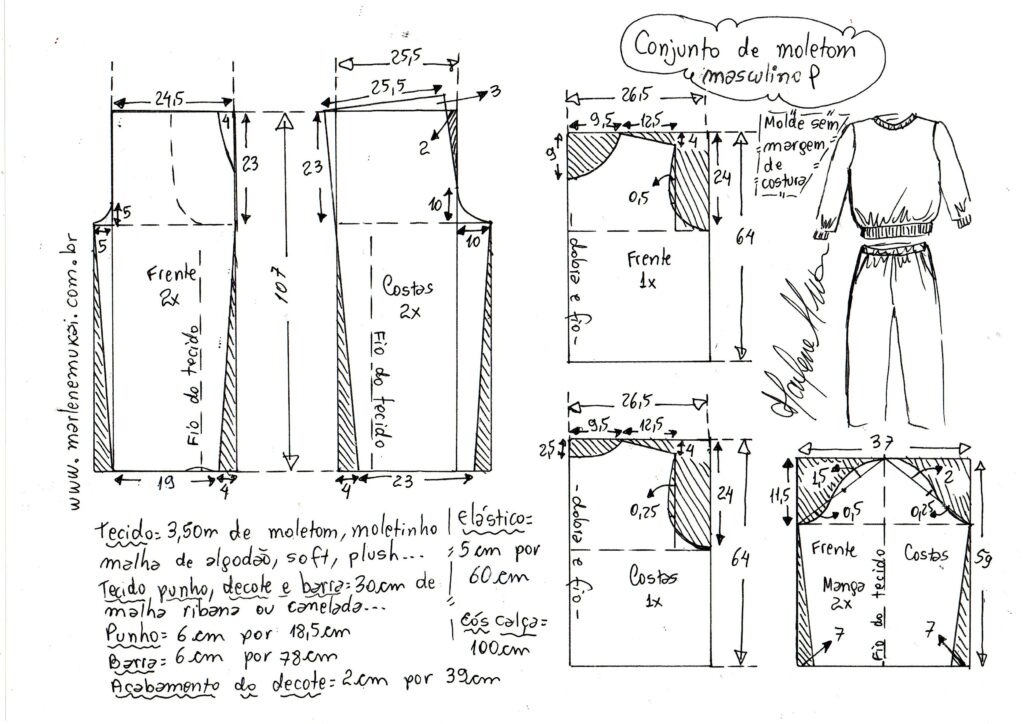 Conjunto de moletom
masculino P
Molde sem
margem
de
costura
www.marlenemukai.com.br
24,5
4
23
5
5
Frente
2x
Fio do tecido
19
4
107
25,5
25,5
3
2
23
10
10
Costas
2x
Fio do tecido
4
23
26,5
9,5
12,5
9
4
0,5
24
64
Frente
1x
- dobra e fio -
26,5
9,5
12,5
2,5
4
0,25
24
64
Costas
1x
- dobra e fio -
37
1,5
2
11,5
0,5
0,25
59
Frente
Costas
Manga
2x
Fio do tecido
7
7
Tecido= 3,50m de moletom, moletinho
malha de algodão, soft, plush...
Tecido punho, decote e barra= 30cm de
malha ribana ou canelada...
Punho= 6cm por 18,5cm
Barra= 6cm por 78cm
Acabamento do decote= 2cm por 39cm
Elástico=
5cm por
60cm
Cós calça=
100cm